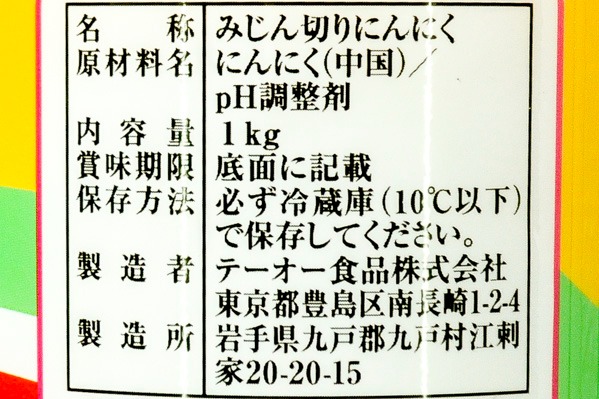 名称 みじん切りにんにく
原材料名 にんにく(中国)／
pH調整剤
内容量 1kg
賞味期限 底面に記載
保存方法 必ず冷蔵庫(10℃以下)
で保存してください。
製造者 テーオー食品株式会社
東京都豊島区南長崎1-2-4
製造所 岩手県九戸郡九戸村江刺
家20-20-15